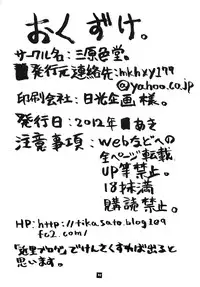 おくずけ。
サークル名：三原色堂。
発行元連絡先：mkhxy179
@yahoo.co.jp
印刷会社：日光企画様。
発行日：2012年 あき
注意事項：Webなどへの
全ページ転載
UP等禁止。
18才未満
購読禁止。
HP: http://tikasato.blog109
fc2.com/
「近里ブログ」でけんさくすれば出ると
思います。